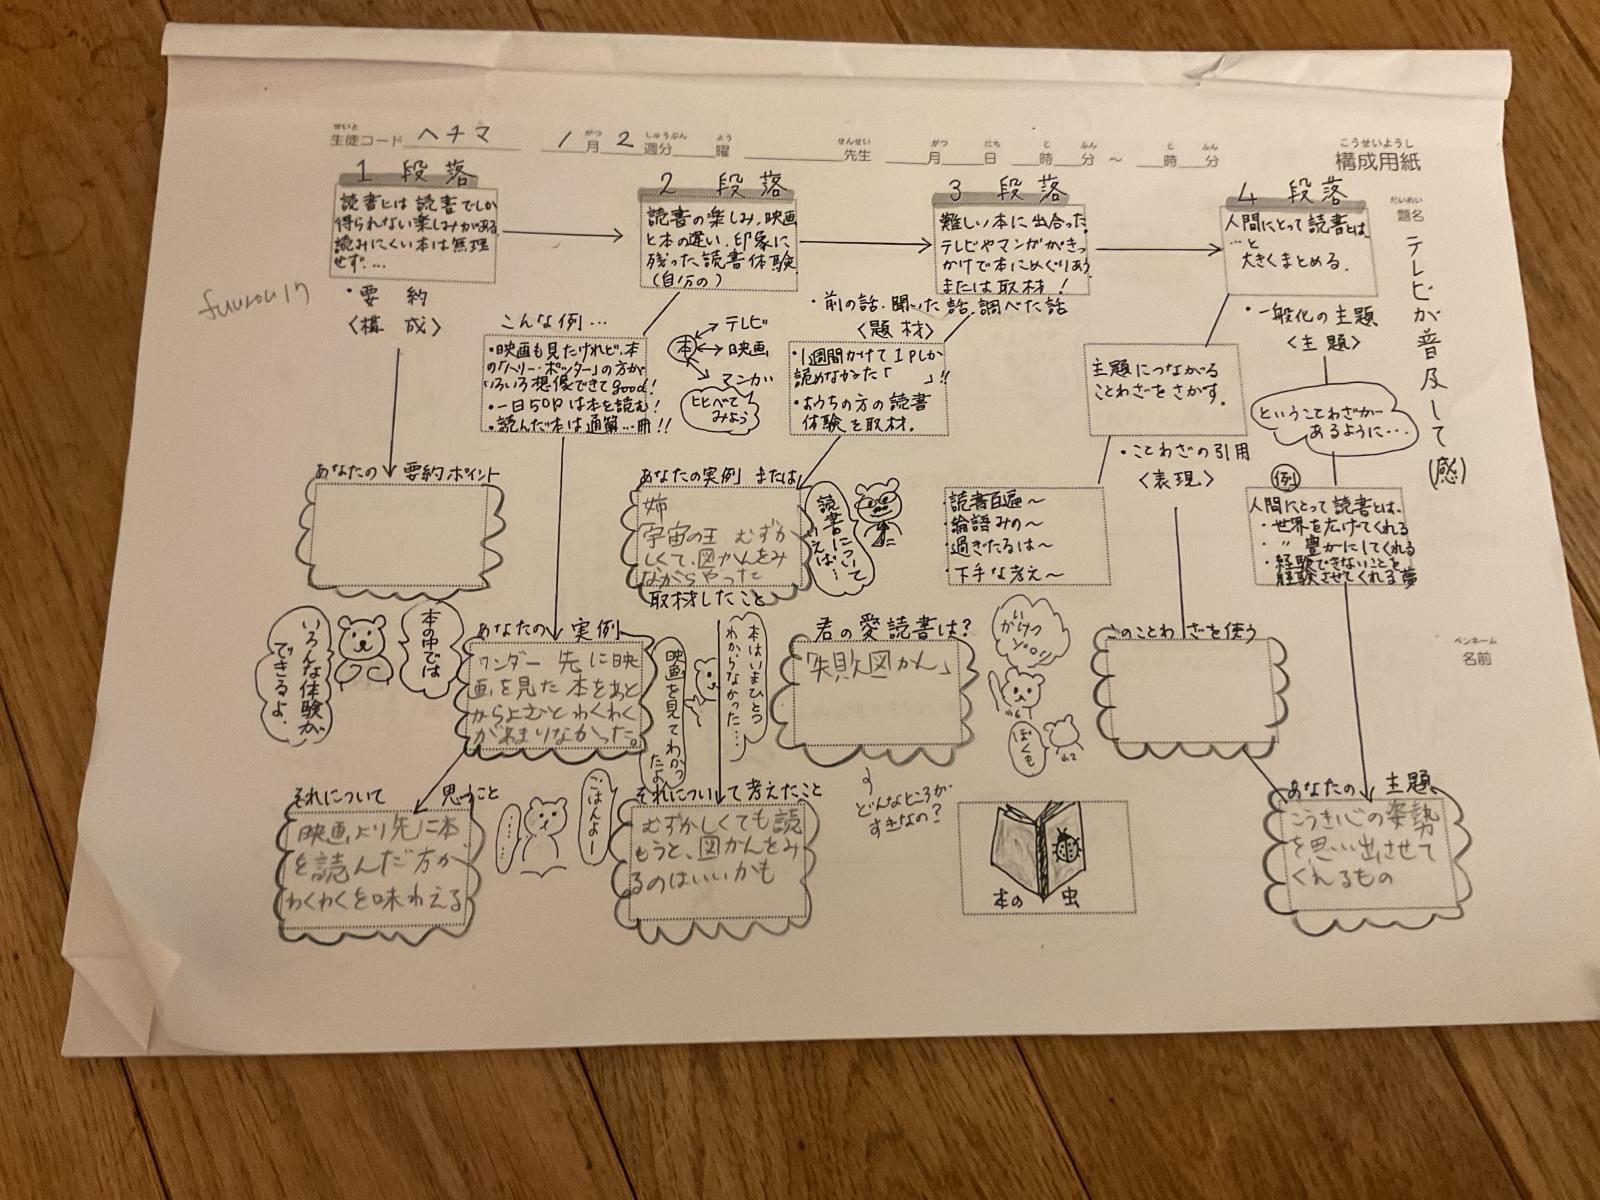 せいと
生徒コード ヘチマ 1 月 2 週分 曜 先生 月 日 時 分 〜 時 分
がつ しゅうぶん よう せんせい がつ にち じ ふん じ ふん
こうせいようし
構成用紙
だいめい
題名
テレビが普及して(感)
ペンネーム
名前
1 段落
読書とは読書でしか
得られない楽しみがある
読みにくい本は無理
せず....
・要約
〈構成〉
あなたの 要約ポイント
本の中では
いろんな体験が
できるよ.
2 段落
読書の楽しみ.映画
と本の違い.印象に
残った読書体験
(自分の)
こんな例…
・映画も見たけれど、本
の「ハリー・ポッター」の方が
いろいろ想像できてgood!
・一日50Pは本を読む!
・読んだ本は通算…冊!!
本
テレビ
映画
マンガ
比べて
みよう
あなたの 実例
ワンダー 先に映
画を見た 本をあと
からよむとわくわく
があまりなかった。
それについて 思うこと
映画より先に本
を読んだ方が、
わくわくを味わえる
ごはんよー
3 段落
難しい本に出合った.
テレビやマンガがきっ
かけで本にめぐりあう
または取材!
・前の話.聞いた話.調べた話
〈題材〉
・1週間かけて1Pしか
読めなかった「 」!!
・おうちの方の読書
体験を取材.
あなたの実例 または
姉
宇宙の王 むずか
しくて、図かんをみ
ながらやった
取材したこと
読書について
いえば…
本はいまひとつ
わからなかった…
映画を見てわかっ
たよ
それについて考えたこと
むずかしくても読
もうと、図かんをみ
るのはいいかも
君の愛読書は?
「失敗図かん」
どんなところが
すきなの?
いけっ
ぼくも
本の 虫
4 段落
人間にとって読書とは、
…と
大きくまとめる.
・一般化の主題
〈主題〉
主題につながる
ことわざをさがす.
・ことわざの引用
〈表現〉
ということわざが
あるように…
・読書百遍〜
・論語よみの〜
・過ぎたるは〜
・下手な考え〜
例
人間にとって読書とは、
・世界を広げてくれる
・〃 豊かにしてくれる
・経験できないことを
経験させてくれる夢
このことわざを使う
あなたの 主題
こうき心の姿勢
を思い出させて
くれるもの